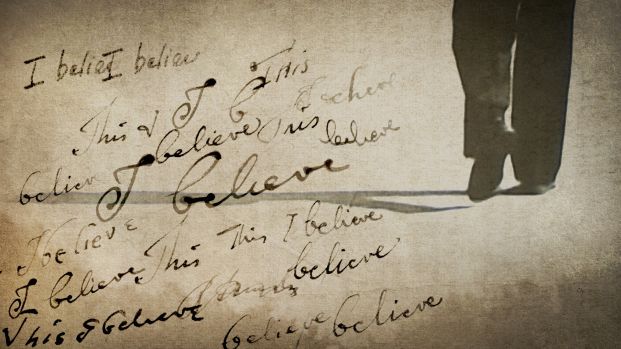 I belie I believ
This
This & I b
believe This believe
believ I believe
I believe
I believe This This I believe
This & believe believe
believe believe